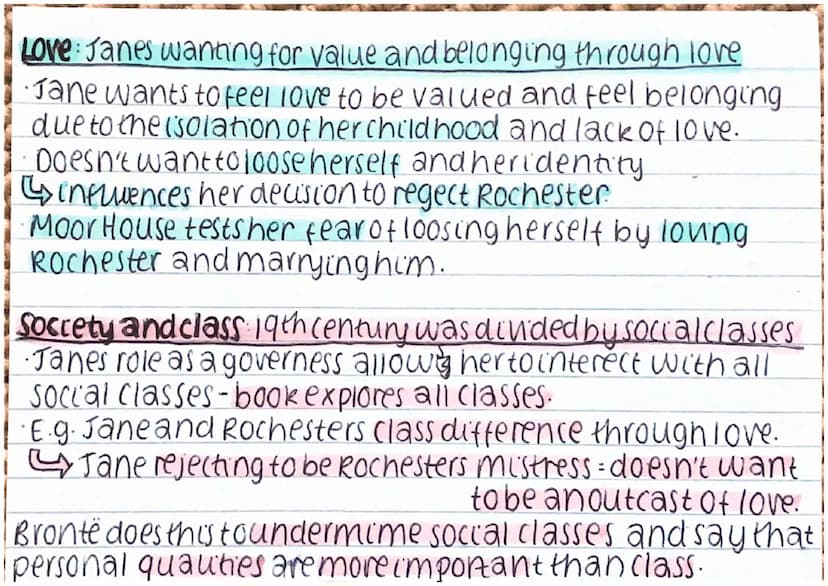 Love: Janes wanting for value and belonging through love
·Jane wants to feel love to be valued and feel belonging
due to the isolation of her childhood and lack of love.
·Doesn't want to loose herself and her identity
↳ influences her decision to regect Rochester.
·Moor House tests her fear of loosing herself by loving
Rochester and marrying him.
Society and class: 19th century was divided by social classes
·Janes role as a governess allows her to interect with all
social classes - book explores all classes.
·E.g. Jane and Rochesters class difference through love.
↳ Jane rejecting to be Rochesters mistress = doesn't want
to be an outcast of love.
Brontë does this to undermime social classes and say that
personal qualities are more important than class.